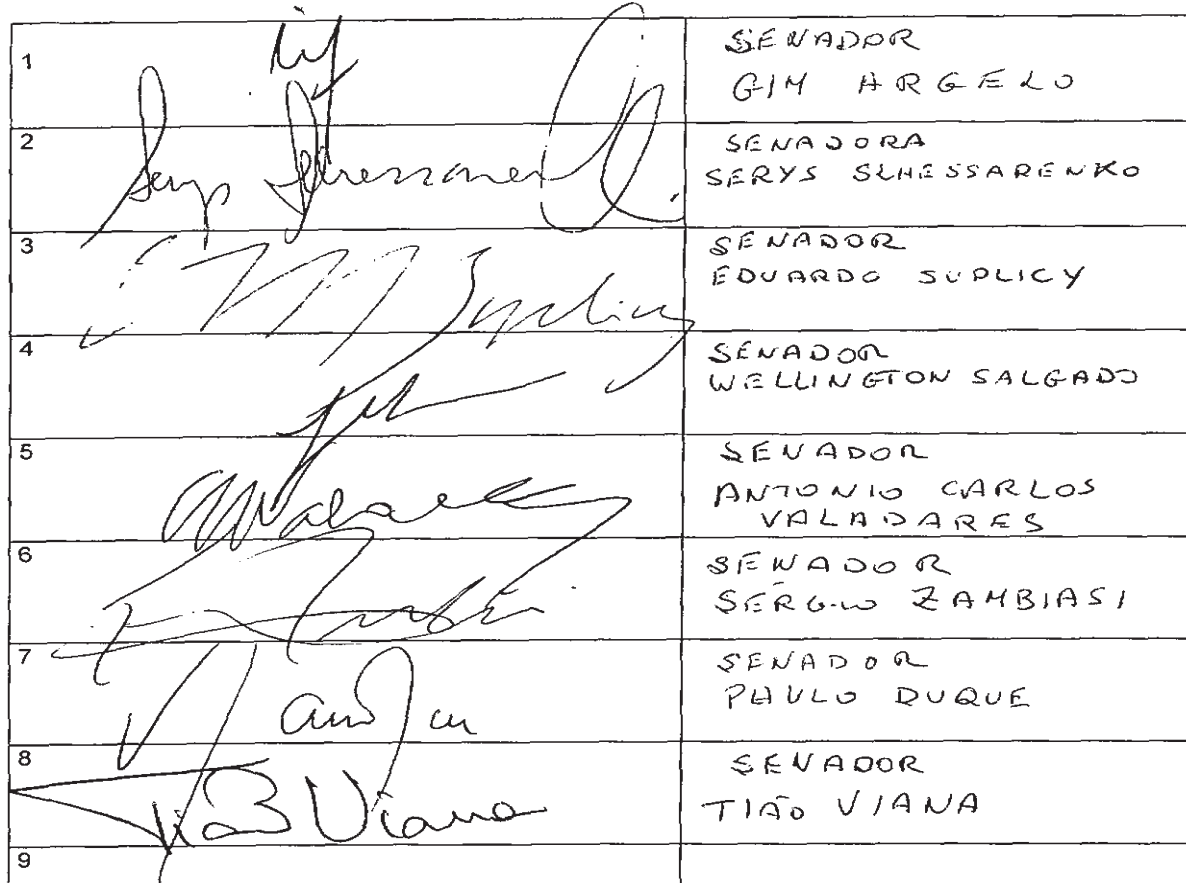 1
SENADOR
GIM ARGELO
2
SENADORA
SERYS SLHESSARENKO
3
Suplicy
SENADOR
EDUARDO SUPLICY
4
SENADOR
WELLINGTON SALGADO
5
Valadares
SENADOR
ANTONIO CARLOS
VALADARES
6
SENADOR
SÉRGIO ZAMBIASI
7
SENADOR
PAULO DUQUE
8
Tião Viana
SENADOR
TIÃO VIANA
9